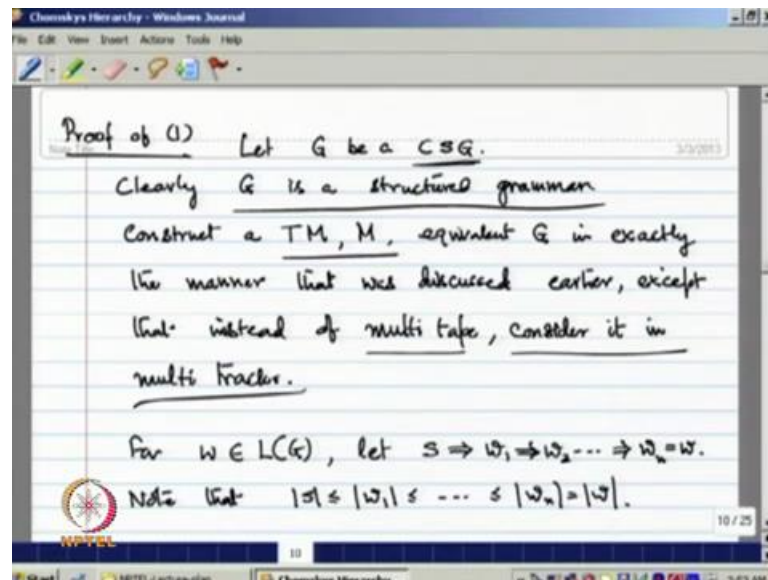 Chomskys Hierarchy - Windows Journal
File Edit View Insert Actions Tools Help
Note Title
3/3/2013
Proof of (1) Let G be a CSG.
Clearly G is a structured grammar
Construct a TM, M, equivalent G in exactly
the manner that was discussed earlier, except
that instead of multi tape, consider it in
multi tracks.
For w ∈ L(G), let S ⇒ w₁ ⇒ w₂ --- ⇒ wₙ = w.
Note that |S| ≤ |w₁| ≤ --- ≤ |wₙ| = |w|.
NPTEL
10 / 25
10
Start NPTEL-Lecture-plan Chomskys Hierarchy